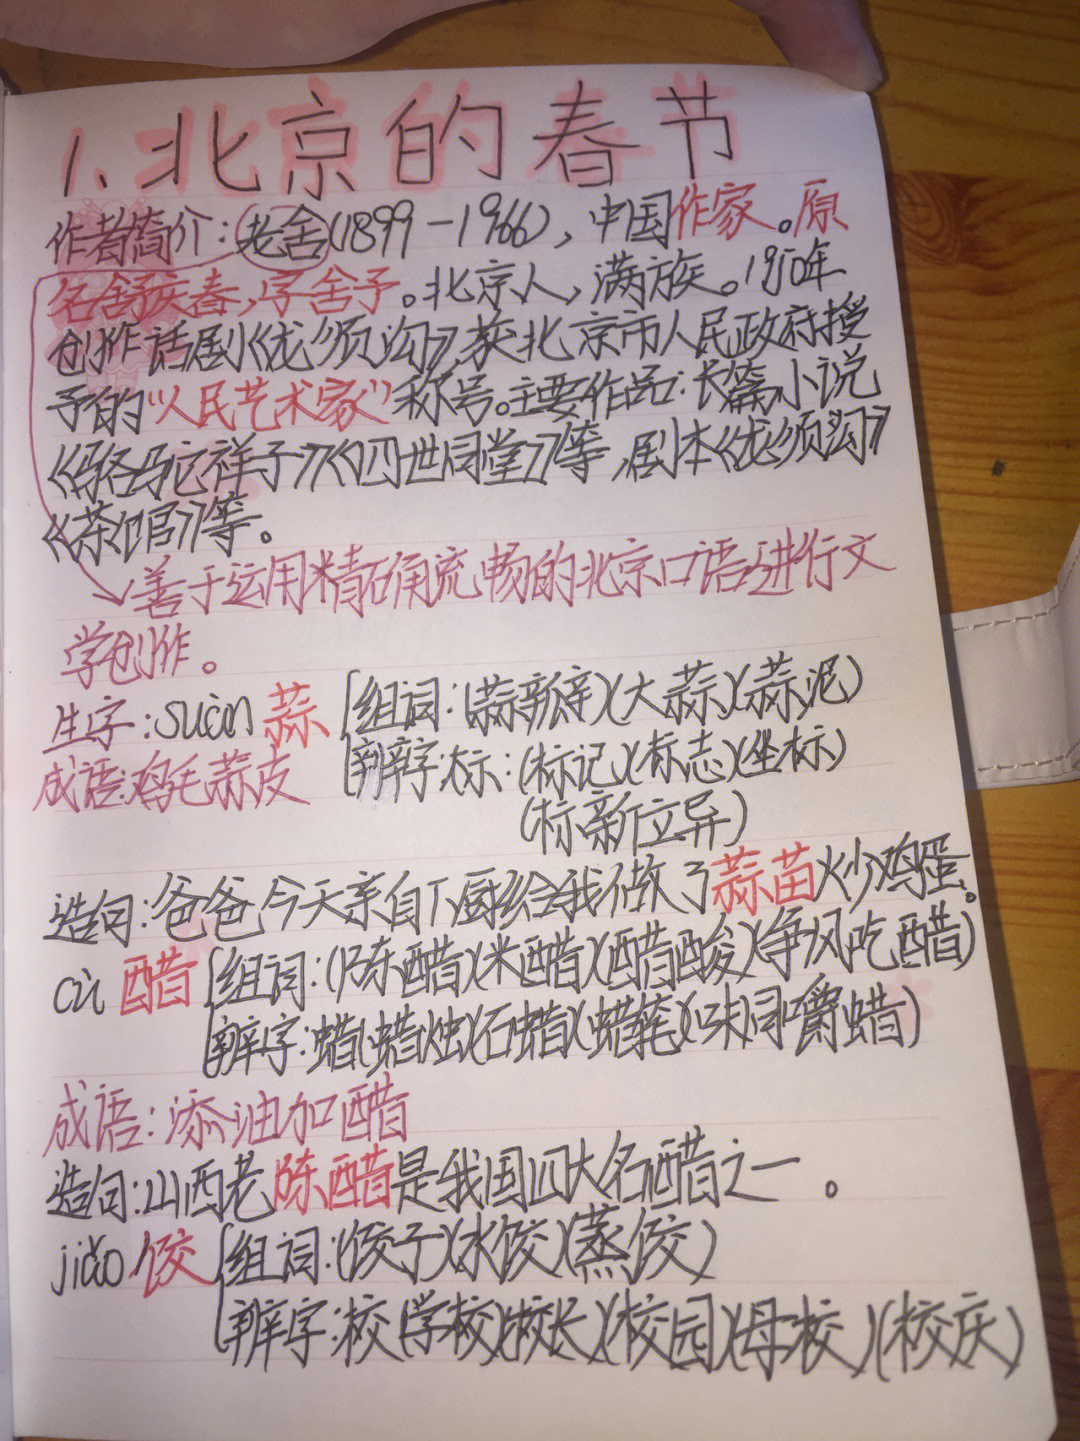 1、北京的春节
作者简介:老舍(1899-1966),中国作家。原
名舒庆春,字舍予。北京人,满族。1950年
创作话剧《龙须沟》,获北京市人民政府授
予的“人民艺术家”称号。主要作品:长篇小说
《骆驼祥子》《四世同堂》等,剧本《龙须沟》
《茶馆》等。
善于运用精确流畅的北京口语进行文
学创作。
生字:suàn 蒜 组词:(蒜瓣)(大蒜)(蒜泥)
成语:鸡毛蒜皮 辨字:标:(标记)(标志)(坐标)
(标新立异)
造句:爸爸今天亲自下厨给我做了蒜苗炒鸡蛋。
cù 醋 组词:(陈醋)(米醋)(醋酸)(争风吃醋)
辨字:蜡(蜡烛)(石蜡)(蜡笔)(味同嚼蜡)
成语:添油加醋
造句:山西老陈醋是我国四大名醋之一。
jiǎo 饺 组词:(饺子)(水饺)(蒸饺)
辨字:校(学校)(校长)(校园)(母校)(校庆)